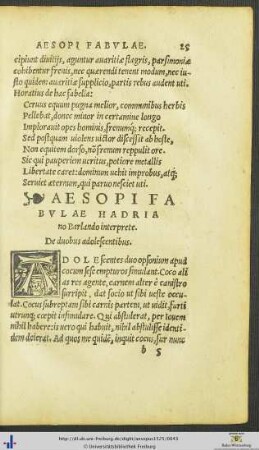 AESOPI FABVLAE. 25
cipiunt diuitijs, aguntur auaritiæ flagris, parsimoniæ
cohibentur frenis, nec quærendi tenent modum, nec iu-
sto quidem auaritiæ supplicio, partis rebus audent uti.
Horatius de hac fabella:
Ceruus equum pugna melior, communibus herbis
Pellebat, donec minor in certamine longo
Implorauit opes hominis, frenumq; recepit.
Sed postquam uiolens uictor discessit ab hoste,
Non equitem dorso, nõ frenum reppulit ore.
Sic qui pauperiem ueritus, potiore metallis
Libertate caret: dominum uehit improbus, atq;
Seruiet æternum, qui paruo nesciet uti.
AESOPI FA
BVLAE HADRIA
no Barlando interprete.
De duobus adolescentibus.
ADOLEscentes duo opsonium apud
cocum sese empturos simulant. Coco ali
as res agente, carnem alter è canistro
surripit, dat socio ut sibi ueste occu
dat. Cocus subreptam sibi carnis partem, ut uidit, furti
utrunq; cœpit insimulare. Qui abstulerat, per Iouem
nihil habere: is uero qui habuit, nihil abstulisse identi-
dem deierat. Ad quos me quidẽ, inquit cocus, fur nunc
b 5
http://dl.ub.uni-freiburg.de/diglit/aesopus1521/0045
© Universitätsbibliothek Freiburg
Baden-Württemberg